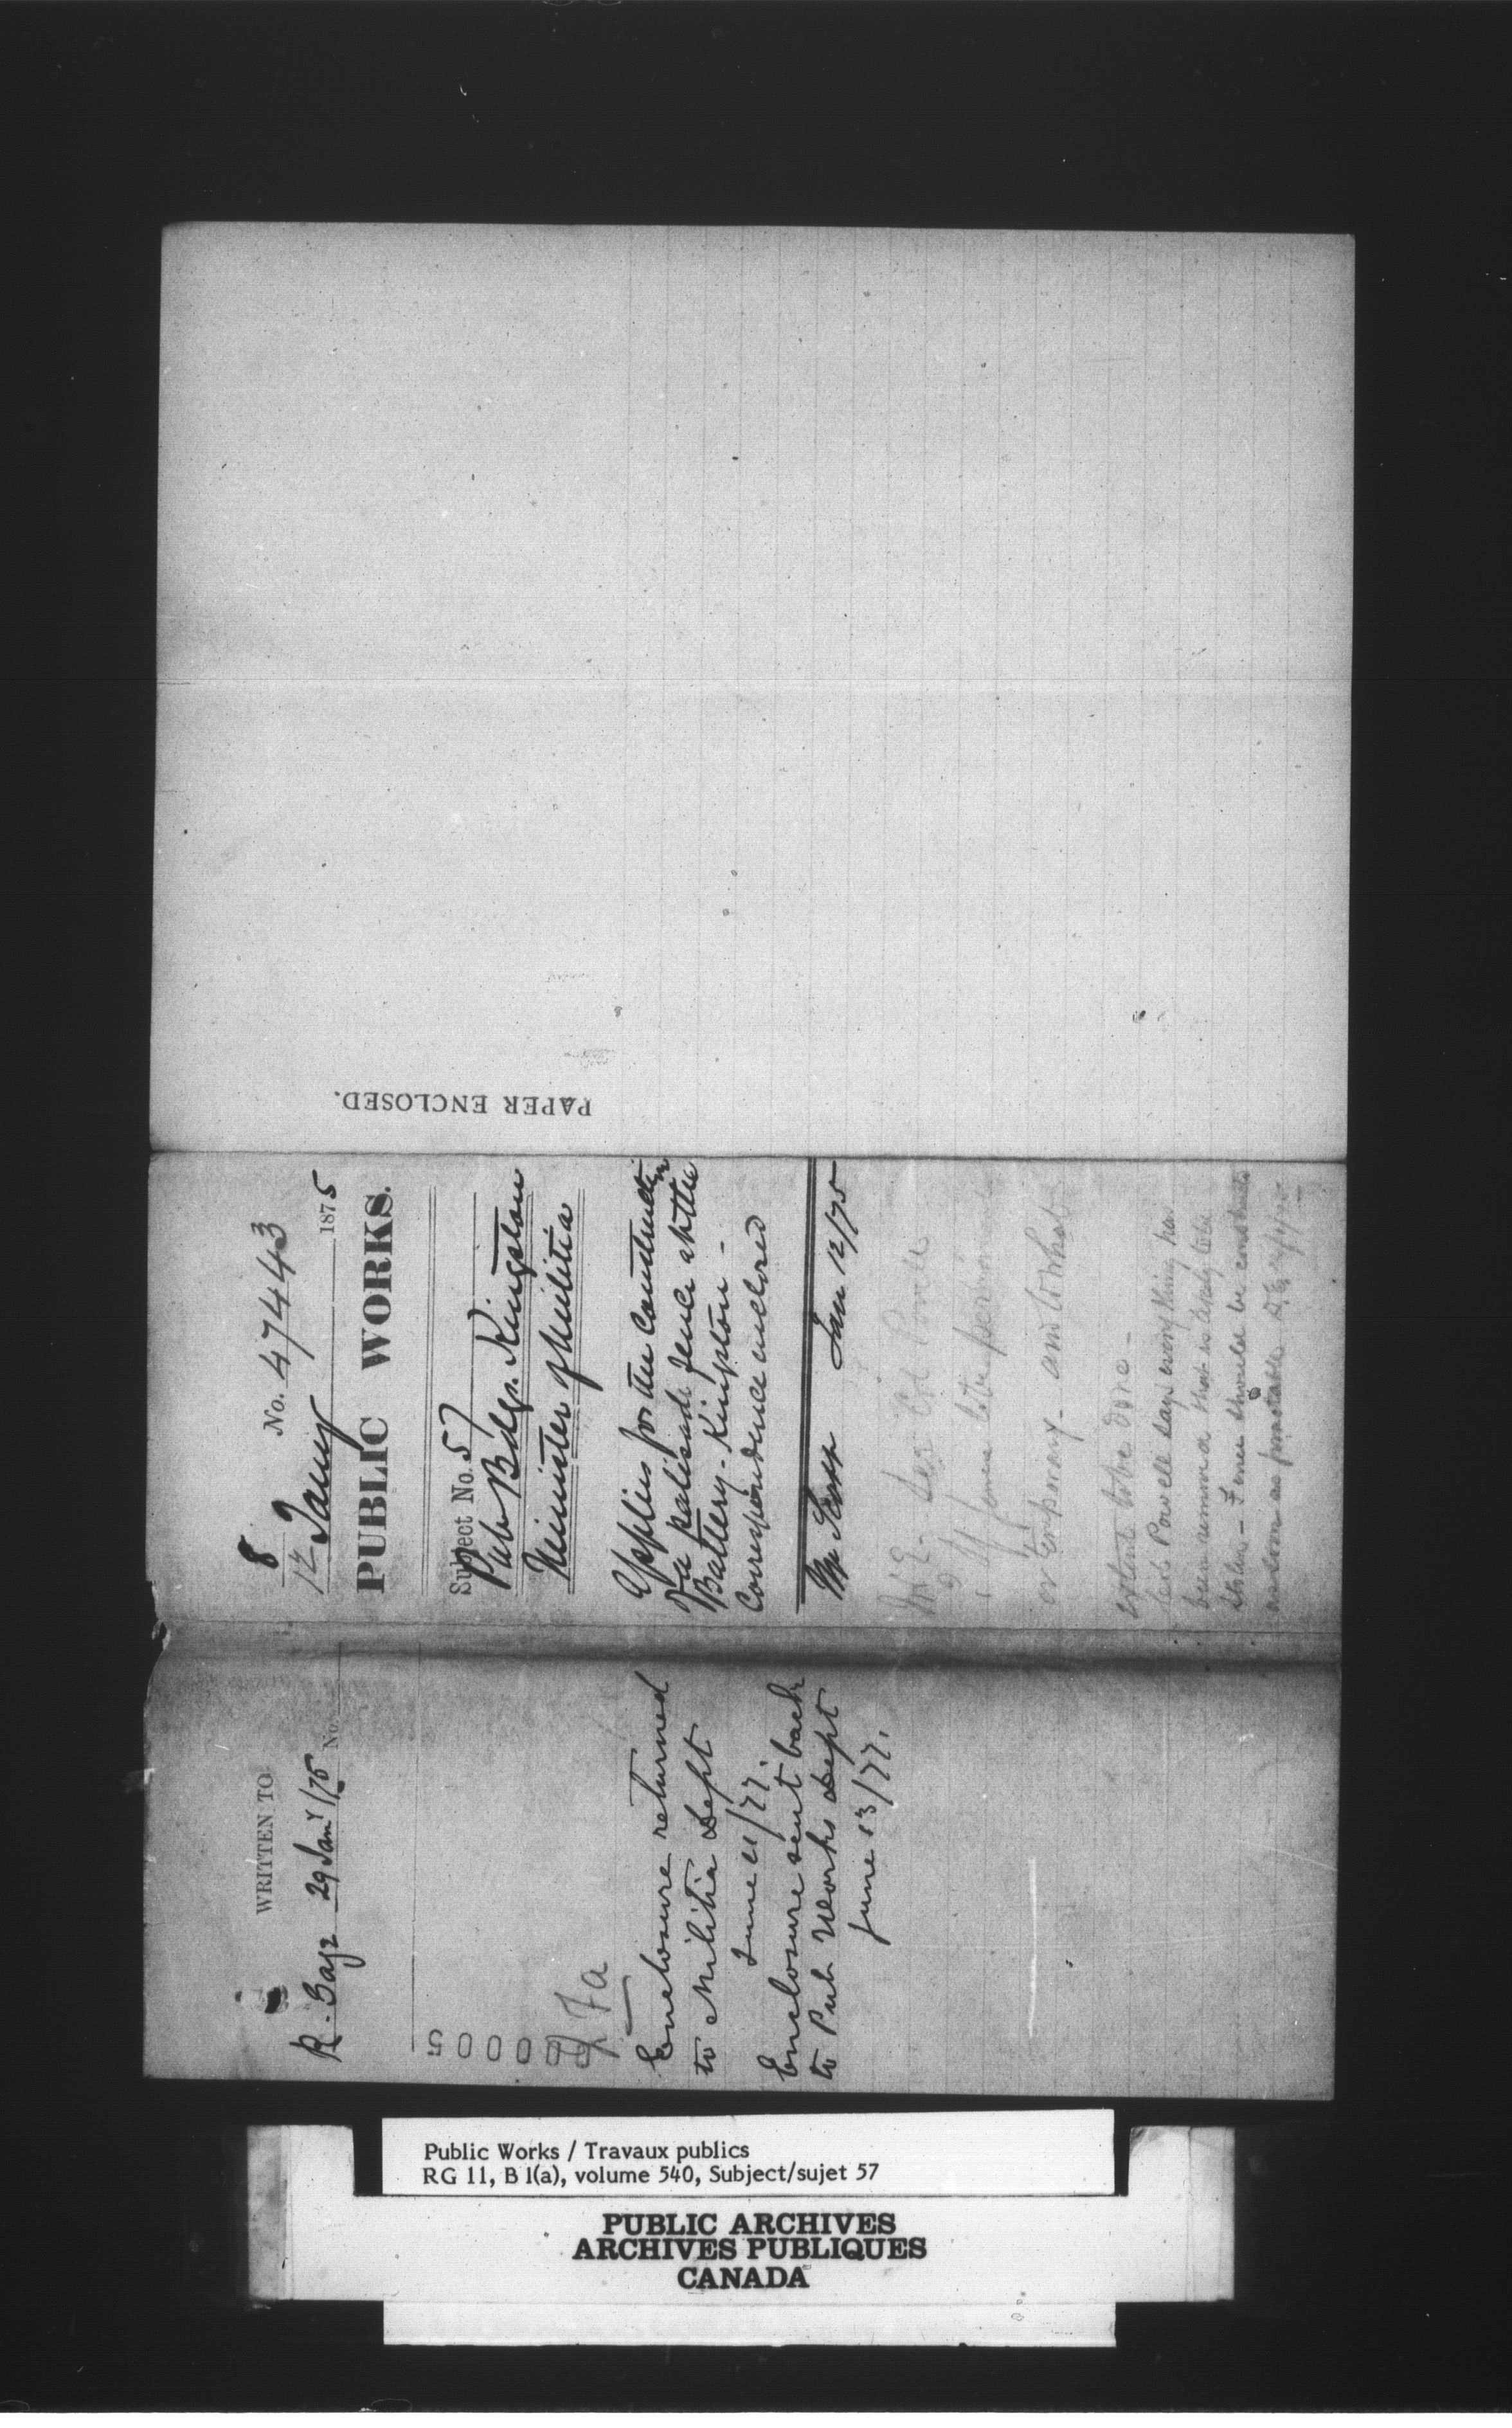 PAPER ENCLOSED.
No. 47443
8
12 Jany 1875
PUBLIC WORKS.
Subject No. 57
Pub Bdgs. Kingston
Minister of Militia
Applies for the Construction
of a palisade fence at the
Battery - Kingston -
Correspondence enclosed
Mr Scott Jan 12/75
See Col Powell
fence to be permanent
or temporary - and to what
extent to be done -
Col Powell says everything has
been removed that is likely to be
stolen - Fence should be constructed
as soon as practicable
WRITTEN TO
R. Gage 29 Jany /75 No.
27a
Enclosure returned
to Militia Dept
June 11/77.
Enclosure sent back
to Pub Works Dept
June 13/77.
Public Works / Travaux publics
RG 11, B 1(a), volume 540, Subject/sujet 57
PUBLIC ARCHIVES
ARCHIVES PUBLIQUES
CANADA